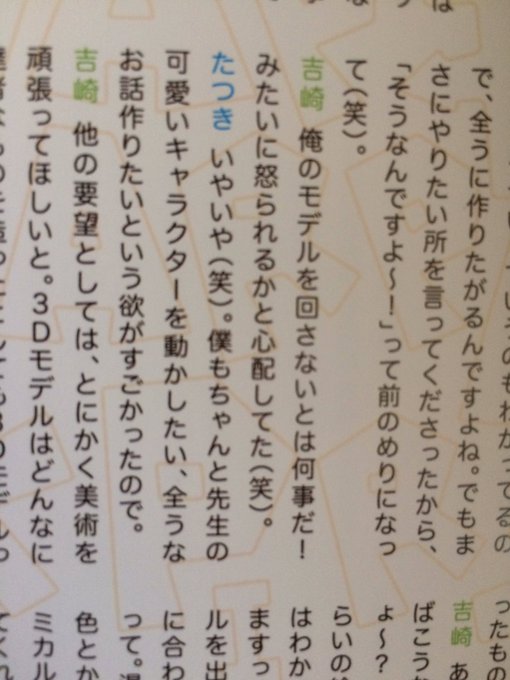 っていうのもわかってるの
で、全うに作りたがるんですよね。でもま
さにやりたい所を言ってくださったから、
「そうなんですよ～！」って前のめりになっ
て（笑）。
吉崎 俺のモデルを回さないとは何事だ！
みたいに怒られるかと心配してた（笑）。
たつき いやいや（笑）。僕もちゃんと先生の
可愛いキャラクターを動かしたい、全うな
お話作りたいという欲がすごかったので。
吉崎 他の要望としては、とにかく美術を
頑張ってほしいと。3Dモデルはどんなに
ったもの
吉崎 あ
ばこう
ょ～？
らいの
はわか
ますっ
ルを出
に合わ
って。
色とか
ミカル
てくれ